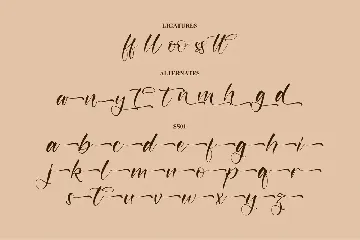 LIGATURES
ff ll oo ss tt
ALTERNATES
a n y I t n m h g d
SS01
a b c d e f g h i
j k l m n o p q r
s t u v w x y z